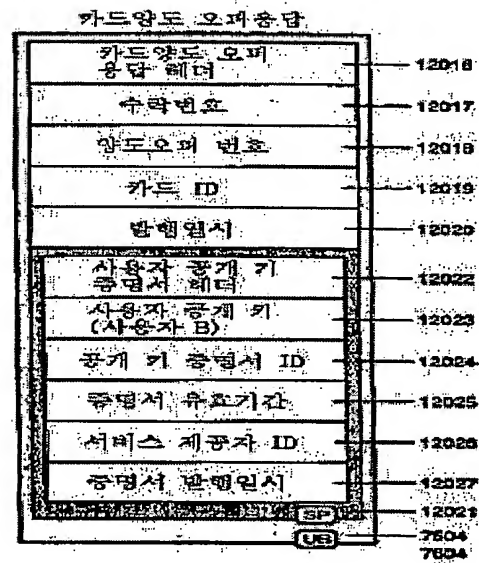 카드양도 오퍼응답
카드양도 오퍼
응답 헤더
12016
수락번호
12017
양도오퍼 번호
12018
카드 ID
12019
발행일시
12020
사용자 공개 키
증명서 헤더
12022
사용자 공개 키
(사용자 B)
12023
공개 키 증명서 ID
12024
증명서 유효기간
12025
서비스 제공자 ID
12026
증명서 발행일시
12027
SP
12021
UB
7604
7604